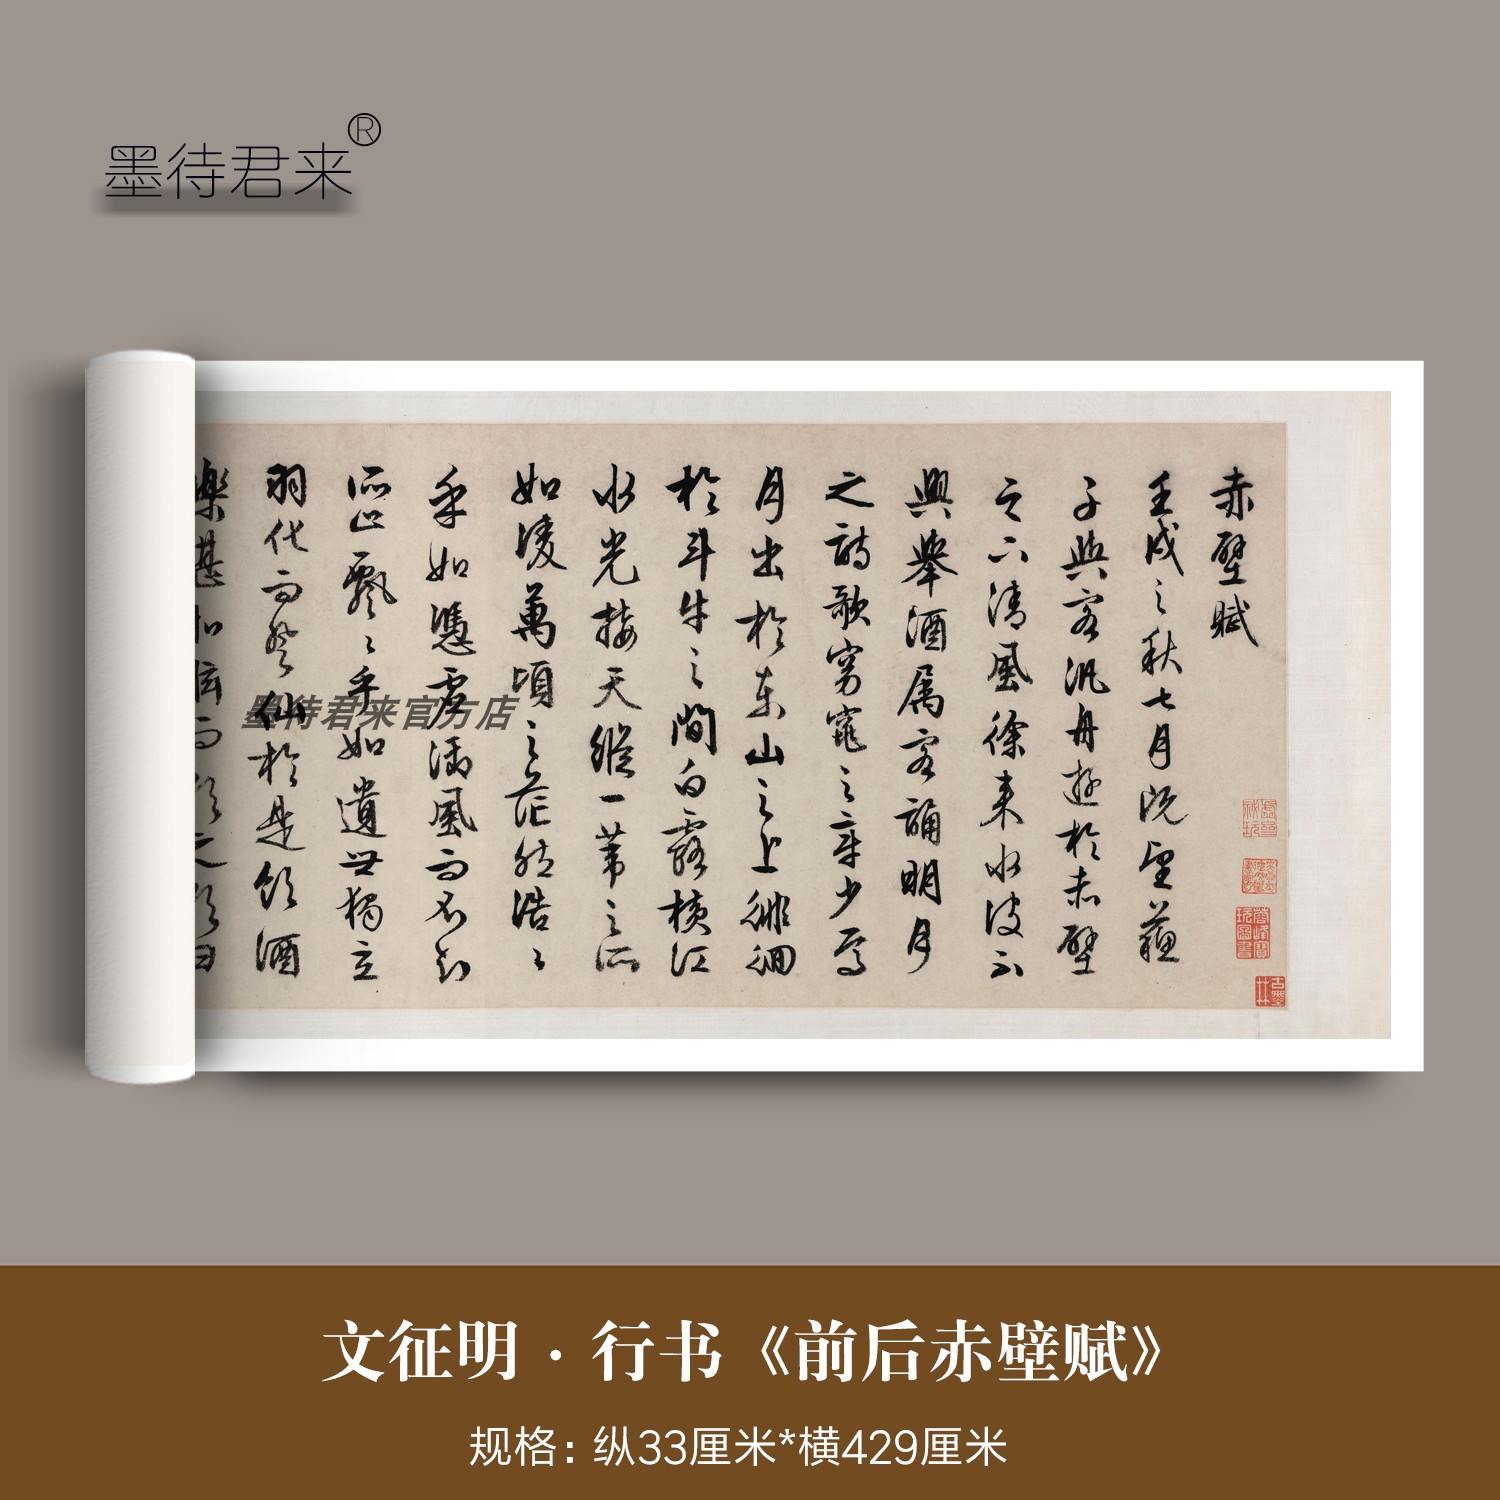 墨待君来®
赤壁賦
壬戌之秋七月既望蘇
子與客汎舟遊於赤壁
之下清風徐来水波不
興舉酒属客誦明月
之詩歌窈窕之章少焉
月出於東山之上徘徊
於斗牛之間白露横江
水光接天縱一葦之所
如凌萬頃之茫然浩〻
乎如憑虚御風而不知
所止飄〻乎如遺世獨立
羽化而登仙於是飲酒
樂甚扣舷而歌之歌曰
墨待君来官方店
文征明·行书《前后赤壁赋》
规格：纵33厘米*横429厘米